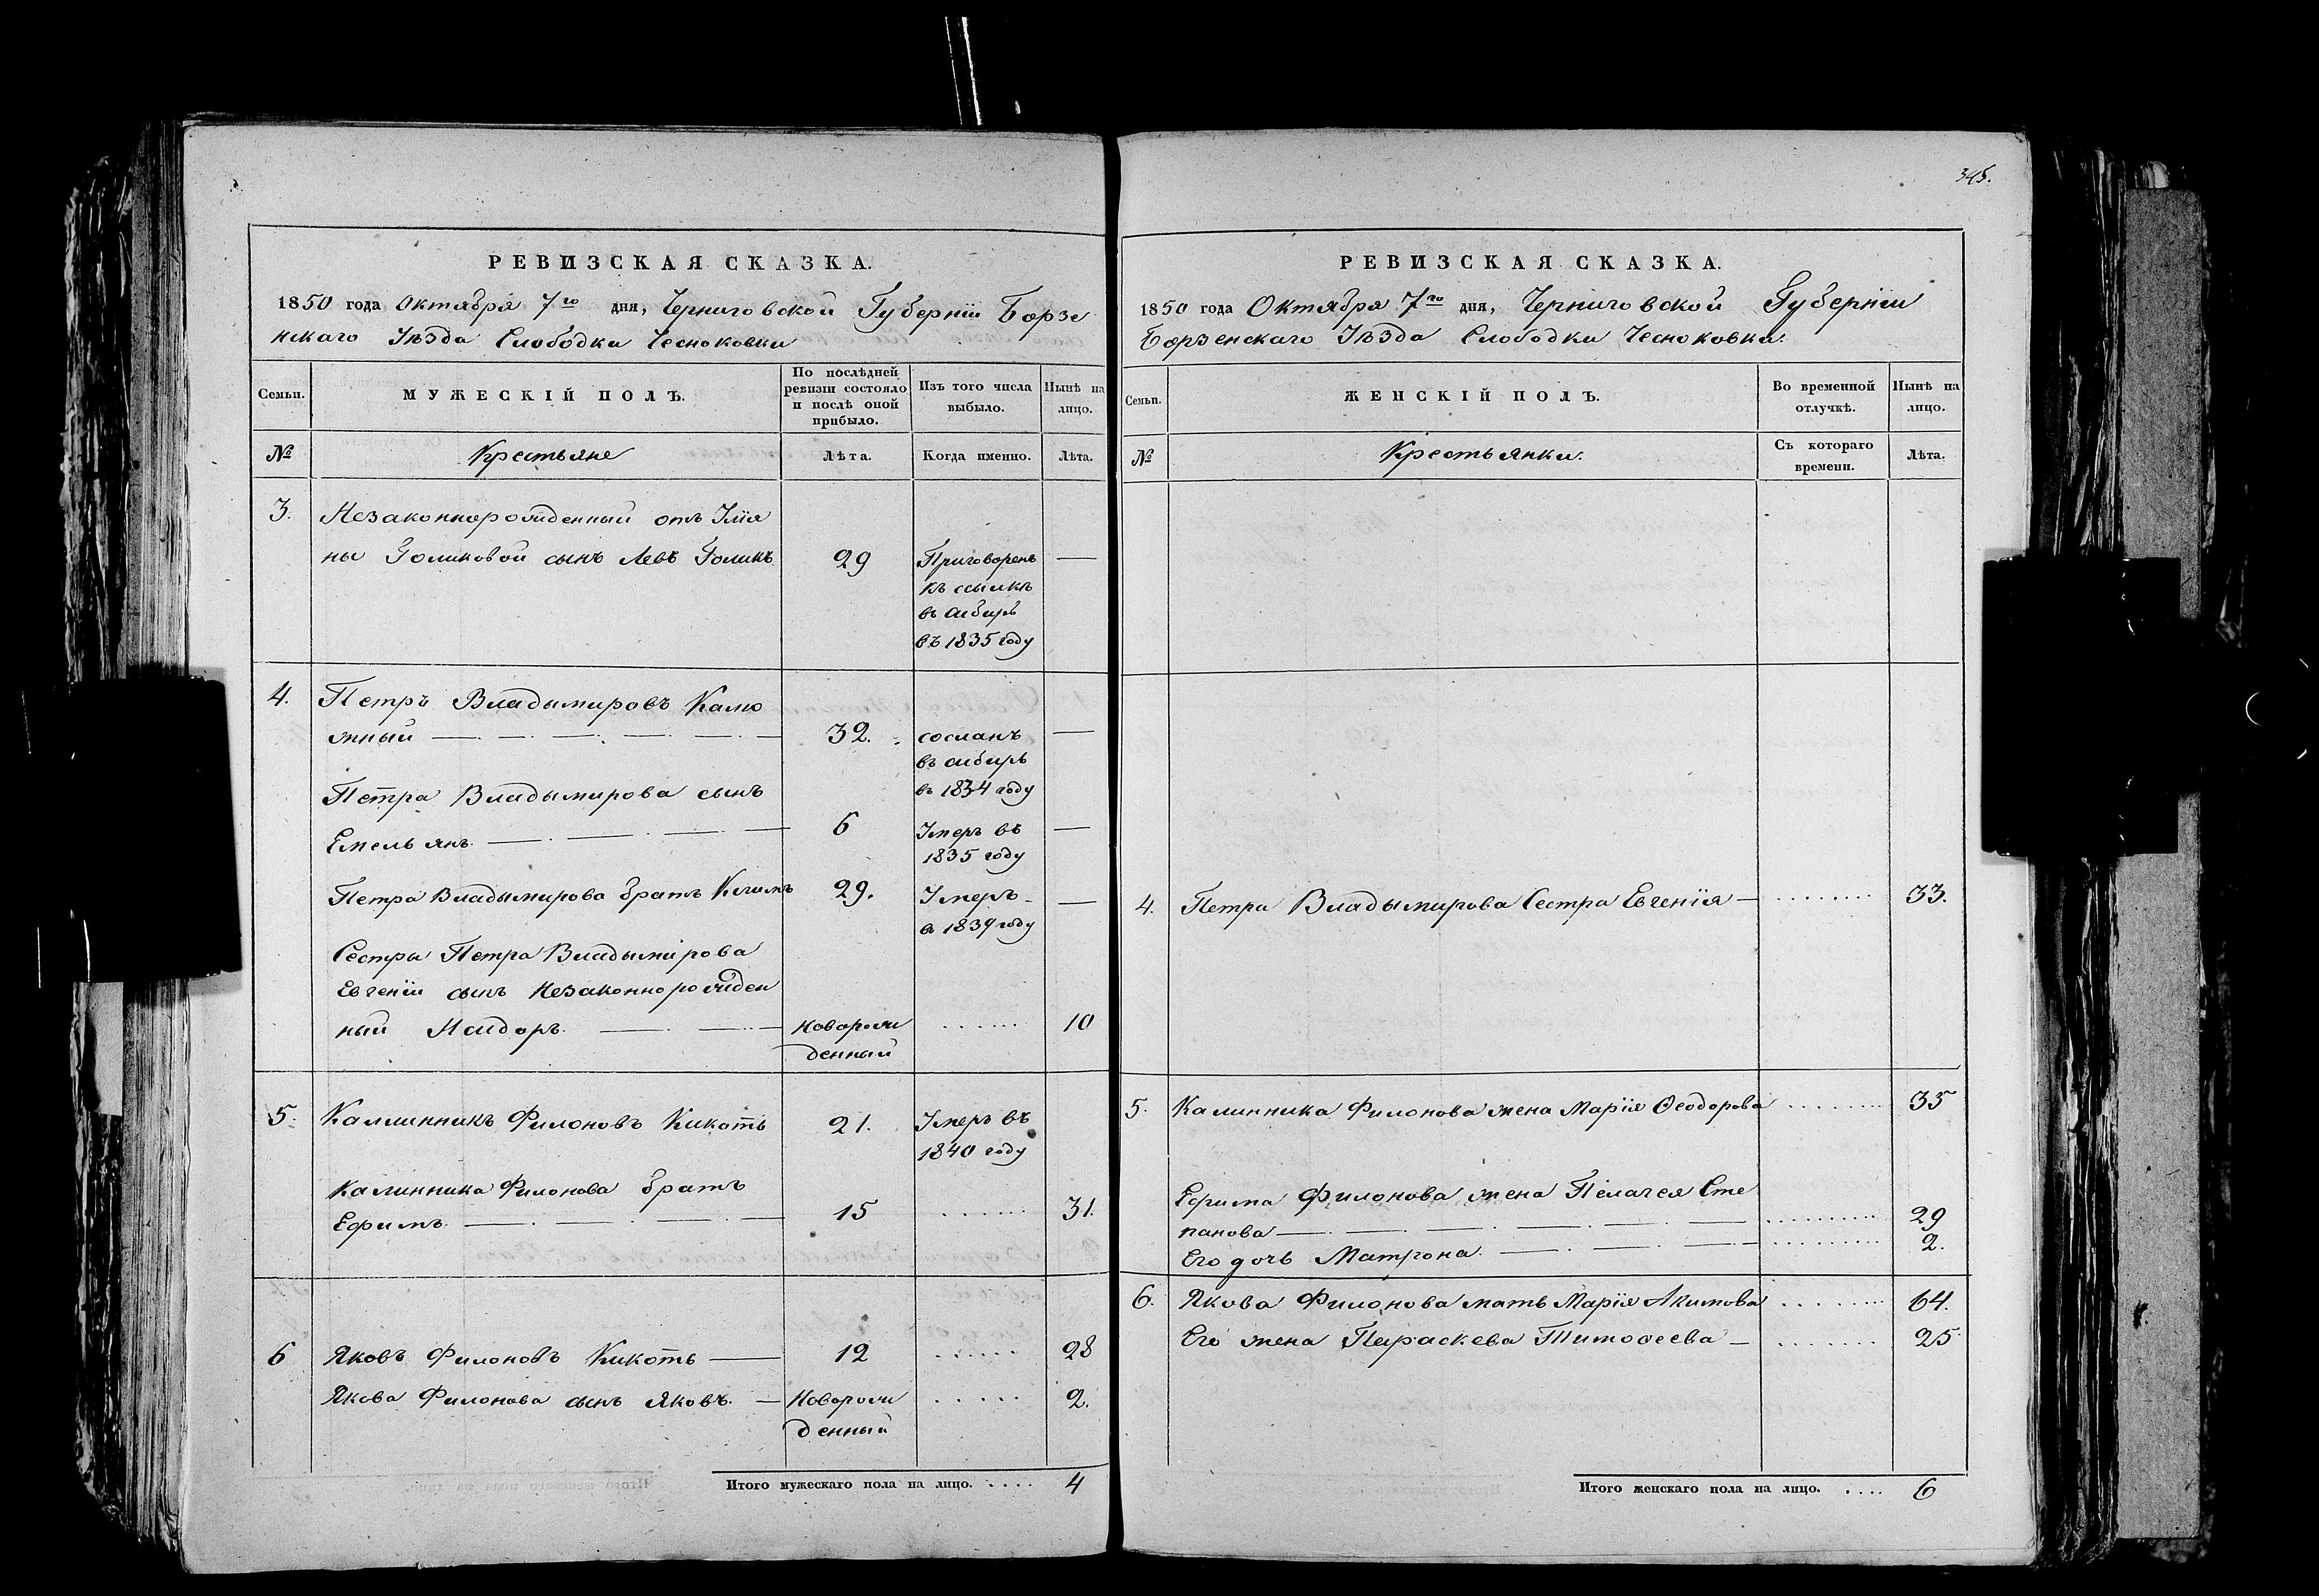 345.
РЕВИЗСКАЯ СКАЗКА.
1850 года Октября 7го дня, Черниговской Губерніи Борзе
нскаго Уѣзда Слободки Чесноковки
Семьи.
МУЖЕСКІЙ ПОЛЪ.
По послѣдней ревизіи состояло и послѣ оной прибыло.
Изъ того числа выбыло.
Нынѣ на лицо.
№
Крестьяне
Лѣта.
Когда именно.
Лѣта.
3. Незаконнорожденный отъ
ны Голиковой сынъ Левъ Голикъ 29 Приговоренъ —
къ ссылкѣ
въ сибирь
въ 1835 году
4. Петръ Владымировъ Калю
жный — 32. сосланъ —
въ сибирь
въ 1834 году
Петра Владымирова сынъ
Емельянъ — 6 Умеръ въ —
1835 году
Петра Владымирова братъ Климъ 29. Умеръ —
в 1839 году
Сестры Петра Владымірова
Евгеніи сынъ Незаконнорожден
ный — новорож ...... 10
денный
5. Калинникъ Филоновъ Кикоть 21. Умеръ въ
1840 году
Калинника Филонова братъ
Ефимъ — 15 ...... 31.
6 Яковъ Филоновъ Кикоть — 12 ...... 28
Якова Филонова сынъ Яковъ. — Новорож ...... 2.
денный
Итого мужескаго пола на лицо. .... 4
РЕВИЗСКАЯ СКАЗКА.
1850 года Октября 7го дня, Черниговской Губерніи
Борзенскаго Уѣзда Слободки Чесноковки.
Семьи.
ЖЕНСКІЙ ПОЛЪ.
Во временной отлучкѣ.
Нынѣ на лицо.
№
Крестьянки.
Съ котораго времени.
Лѣта.
4. Петра Владымирова Сестра Евгенія — ...... 33.
5. Калинника Филонова жена Марія Ѳеодорова ...... 35
Ефима Филонова жена Пелагея Сте
панова — ...... 29
Его дочь Матрона. — ...... 2.
6. Якова Филонова мать Марія Акимова ...... 64.
Его жена Параскева Тимоѳеева — ...... 25
Итого женскаго пола на лицо. .... 6